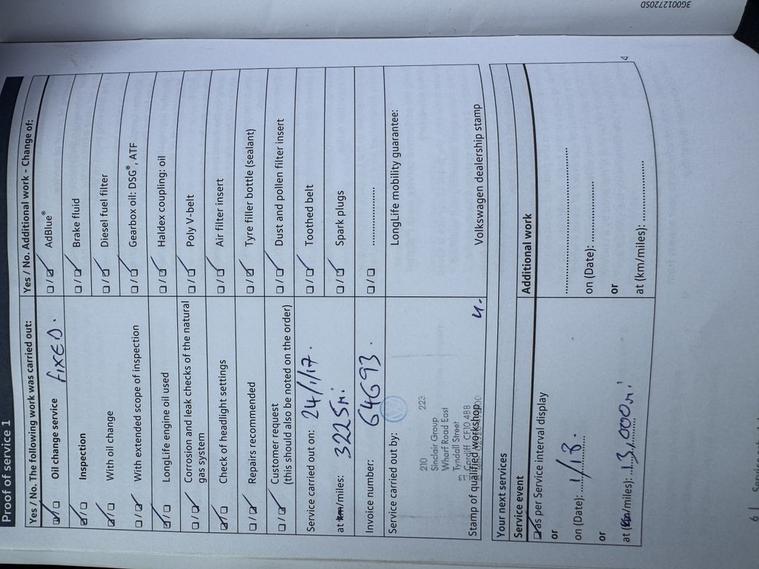 3G0012720SD
Proof of service 1
Yes / No. The following work was carried out:
Oil change service fixed.
Inspection
With oil change
With extended scope of inspection
LongLife engine oil used
Corrosion and leak checks of the natural
gas system
Check of headlight settings
Repairs recommended
Customer request
(this should also be noted on the order)
Service carried out on: 24/1/17.
at km/miles: 3225mi
Invoice number: 64693.
Service carried out by:
210 223
Sinclair Group
Wharf Road East
Tyndall Street
Cardiff CF10 4BB
Stamp of qualified workshop
Yes / No. Additional work - Change of:
AdBlue®
Brake fluid
Diesel fuel filter
Gearbox oil: DSG®, ATF
Haldex coupling: oil
Poly V-belt
Air filter insert
Tyre filler bottle (sealant)
Dust and pollen filter insert
Toothed belt
Spark plugs
....................
LongLife mobility guarantee:
Volkswagen dealership stamp
Your next services
Service event
as per Service interval display
or
on (Date): 1/18.
or
at (km/miles): 13,000mi
Additional work
....................
on (Date): ....................
or
at (km/miles): ....................